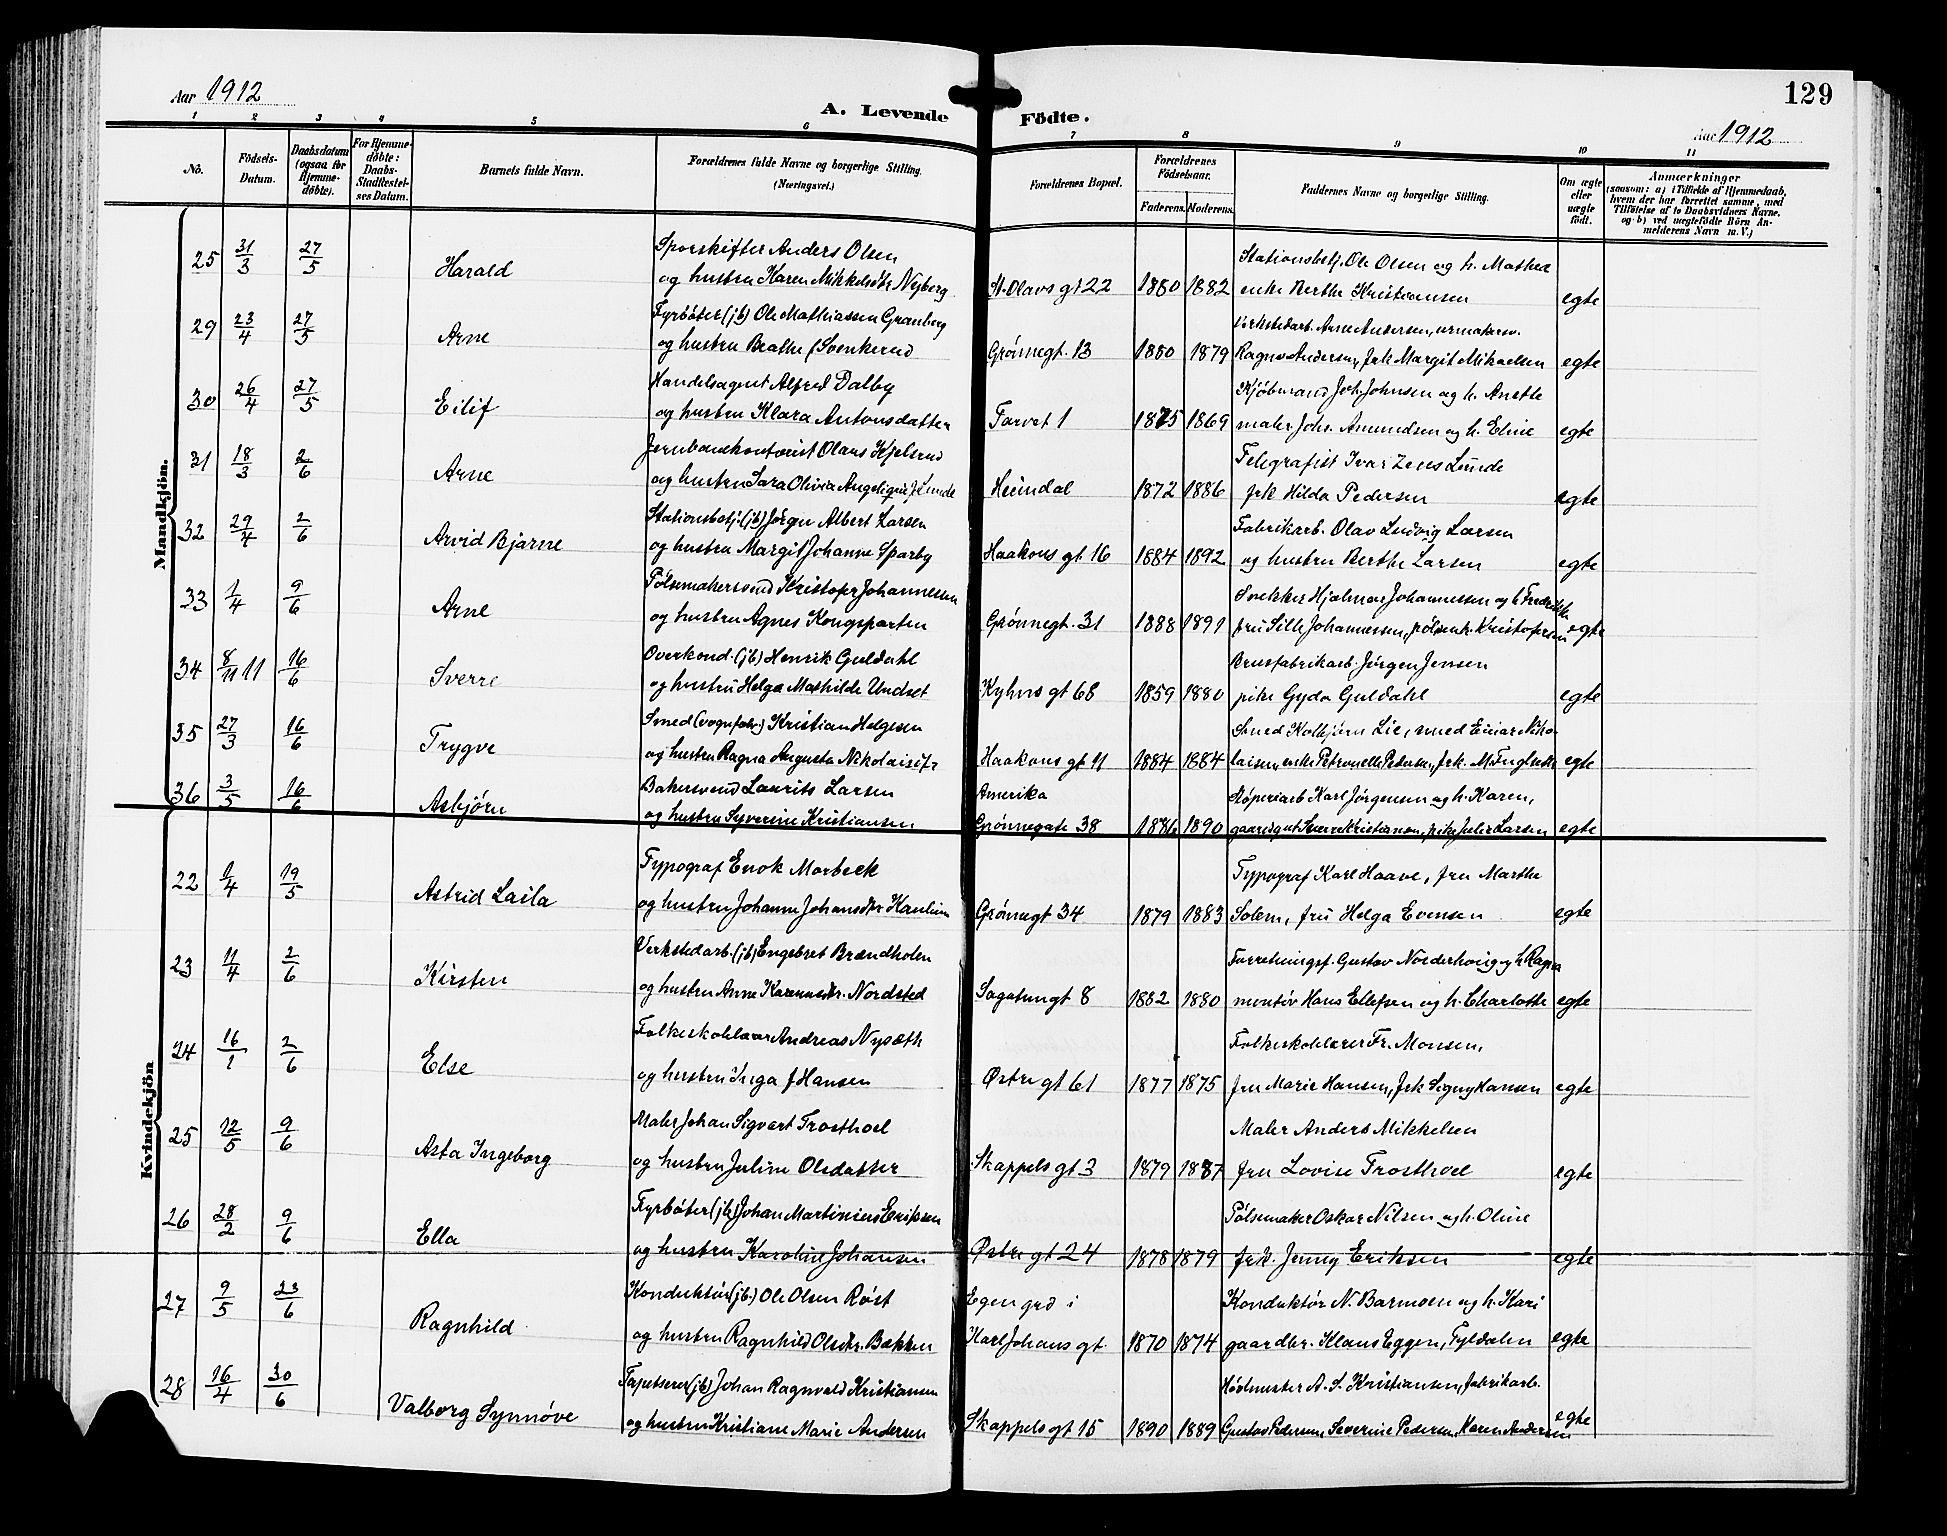 129
Aar 1912
A. Levende Födte.
Aar 1912
1 2 3 4 5 6 7 8 9 10 11
No.
Födsels-Datum.
Daabsdatum (ogsaa for Hjemme-döbte).
For Hjemme-döbte: Daabs-Stadfestel-ses Datum.
Barnets fulde Navn.
Forældrenes fulde Navne og borgerlige Stilling. (Næringsvei.)
Forældrenes Bopæl.
Forældrenes Födselsaar.
Faderens. Moderens.
Faddernes Navne og borgerlige Stilling.
Om ægte eller uægte födt.
Anmærkninger
(saasom: a) i Tilfælde af Hjemmedaab, hvem der har forrettet samme, med Tilföielse af to Daabsvidners Navne, og b) ved uægtefödte Börn An-melderens Navn m. V.)
Mandkjön.
25 31/3 27/5 Harald Sporskifter Anders Olsen
og hustru Karen Mikkelsdtr Nyberg St. Olavs gt 22 1880 1882 Stationsbetj. Ole Olsen og h. Mathea
enke Berthe Kristiansen egte
29 23/4 27/5 Arne Fyrbøter (jb) Ole Mathiassen Granberg
og hustru Beathe f Svenkerud Grønnegt. 13 1880 1879 Verkstedarb. Arne Andersen, urmakersv.
Ragnv Andersen, frk Margit Mikaelsen egte
30 26/4 27/5 Eilif Handelsagent Alfred Dalby
og hustru Klara Antonsdatter Torvet 1 1875 1869 Kjøbmand Joh. Johnsen og h. Anette
maler Johr. Amundsen og h. Eline egte
31 18/3 2/6 Arne Jernbanekontorist Olaus Kjelsrud
og hustru Sara Olivia Angelique f. Lunde Heimdal 1872 1886 Telegrafist Ivar Zeus Lunde
frk Hilda Pedersen egte
32 29/4 2/6 Arvid Bjarne Stationsbetj. (jb) Jørgen Albert Larsen
og hustru Margit Johanne Sparby Haakons gt 16 1884 1892 Fabrikarb. Olav Ludvig Larsen
og hustru Berthe Larsen egte
33 1/4 9/6 Arne Pølsemakersvend Kristofer Johannesen
og hustru Agnes Kongsparten Grønnegt. 31 1888 1891 Snekker Hjalmar Johannessen og h Fredrikke
fru Sille Johannessen, pølsem. Kristofersen egte
34 8/11 11 16/6 Sverre Overkond. (jb) Henrik Guldahl
og hustru Helga Mathilde Undset Kyhns gt 68 1859 1880 Brusfabrikarb. Jørgen Jensen
pike Gyda Guldahl egte
35 27/3 16/6 Trygve Smed (vognfabr.) Kristian Helgesen
og hustru Ragna Augusta Nikolaisdtr Haakons gt 11 1884 1884 Smed Kolbjørn Lie, smed Einar Niko
laisen, enke Petronelle Pedersen, frk. M. Fuglseth egte
36 3/5 16/6 Asbjørn Bakersvend Laurits Larsen
og hustru Syverine Kristiansen Amerika
Grønnegate 38 1886 1890 Støperiarb Karl Jørgensen og h. Karen,
gaardsgut Sverre Kristiansen, pike Julie Larsen egte
Kvindekjön
22 1/4 19/5 Astrid Laila Typograf Enok Morbeck
og hustru Johanne Johansdtr Kanlum Grønnegt 34 1879 1883 Typograf Karl Haave, fru Marthe
Solem, fru Helga Evensen egte
23 11/4 2/6 Kirsten Verkstedarb. (jb) Engebret Brændholen
og hustru Anne Karenusdtr. Nordsted Sagatungt 8 1882 1880 Forretningsf. Gustav Norderhoug og h Ragna
montør Hans Ellefsen og h. Charlotte egte
24 16/1 2/6 Else Folkeskolelærer Andreas Nysæth
og hustru Inga f Hansen Østre gt 61 1877 1875 Folkeskolelærer Fr. Monsen,
fru Marie Hansen, frk Signy Hansen egte
25 12/5 9/6 Asta Ingeborg Maler Johan Sigvart Trosthoel
og hustru Juline Olsdatter Skappels gt 3 1879 1887 Maler Anders Mikkelsen
fru Lovise Trosthoel egte
26 28/2 9/6 Ella Fyrbøter (jb) Johan Martinius Eriksen
og hustru Karoline Johansen Østre gt 24 1878 1879 Pølsemaker Oskar Nilsen og h. Oline
frk. Jenny Eriksen egte
27 9/5 23/6 Ragnhild Konduktør (jb.) Ole Olsen Røst
og hustru Ragnhild Olsdtr. Bakken Egen grd i
Karl Johans gt. 1870 1874 Konduktør N. Barmoen og h. Kari
gaardbr. Klaus Eggen, Tyldalen egte
28 16/4 30/6 Valborg Synnøve Tapetserer (jb) Johan Ragnvald Kristiansen
og hustru Kristiane Marie Andersen Skappels gt 15 1890 1889 Hovmester A. S. Kristiansen, fabrikarb.
Gustav Pedersen, Severine Pedersen, Karen Andersen egte